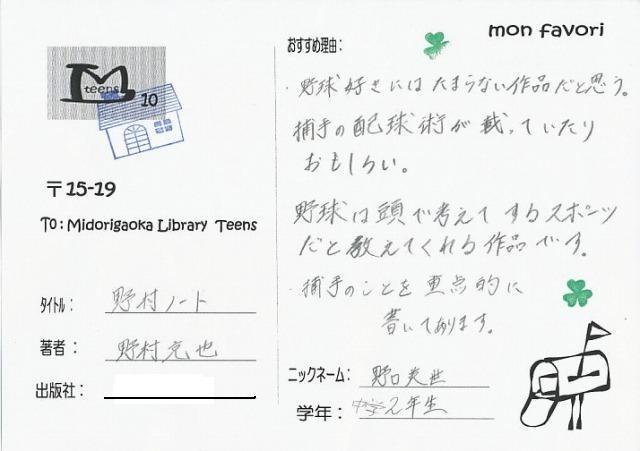 mon favori
M
teens
10
〒15-19
To: Midorigaoka Library Teens
タイトル: 野村ノート
著者: 野村克也
出版社:
おすすめ理由:
・野球好きにはたまらない作品だと思う。
捕手の配球術が載っていたり
おもしろい。
野球は頭で考えてするスポーツ
だと教えてくれる作品です。
・捕手のことを重点的に
書いてあります。
ニックネーム: 野口英世
学年: 中学2年生